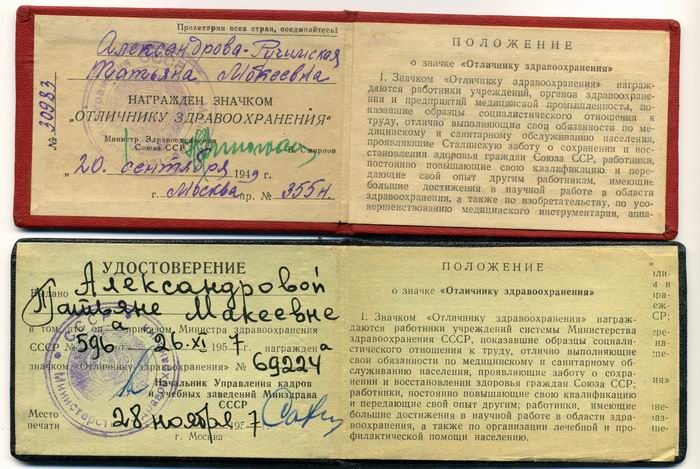 Пролетарии всех стран, соединяйтесь!
Александрова-Ручимская
Татьяна Мокеевна
НАГРАЖДЕН ЗНАЧКОМ
„ОТЛИЧНИКУ ЗДРАВООХРАНЕНИЯ“
Министр Здравоохранения
Союза ССР
„20“ сентября 1949 г.
г. Москва пр. № 355н.
№ 30983
ПОЛОЖЕНИЕ
о значке «Отличнику здравоохранения»
1. Значком «Отличнику здравоохранения» награж-
даются работники учреждений, органов здравоохране-
ния и предприятий медицинской промышленности, по-
казавшие образцы социалистического отношения к
труду, отлично выполняющие свои обязанности по ме-
дицинскому и санитарному обслуживанию населения,
проявляющие Сталинскую заботу о сохранении и вос-
становлении здоровья граждан Союза ССР, работники,
постоянно повышающие свою квалификацию и пере-
дающие свой опыт другим работникам, имеющие
большие достижения в научной работе в области
здравоохранения, а также по изобретательству, по усо-
вершенствованию медицинского инструментария, аппа-
УДОСТОВЕРЕНИЕ
Выдано Александровой
Татьяне Макеевне
в том что он приказом Министра здравоохранения
СССР № 596а 26·XI 1957 г. награжден а
значком «Отличнику здравоохранения» № 69224
Начальник Управления кадров
и учебных заведений Минздрава
СССР
Место
печати
28 ноября 1957
г. Москва
ПОЛОЖЕНИЕ
о значке «Отличнику здравоохранения»
1. Значком «Отличнику здравоохранения» награж-
даются работники учреждений системы Министерства
здравоохранения СССР, показавшие образцы социали-
стического отношения к труду, отлично выполняющие
свои обязанности по медицинскому и санитарному об-
служиванию населения, проявляющие заботу о сохра-
нении и восстановлении здоровья граждан Союза ССР;
работники, постоянно повышающие свою квалификацию
и передающие свой опыт другим; работники, имеющие
большие достижения в научной работе в области здра-
воохранения, а также по организации лечебной и про-
филактической помощи населению.